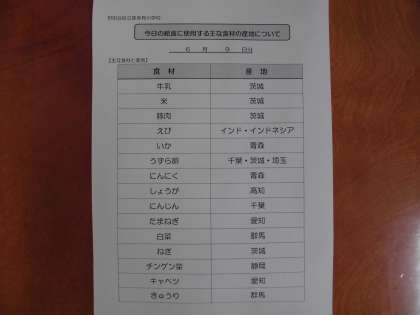 今日の給食に使用する主な食材の産地について
6 月 9 日分
【主な食材と産地】
食 材 産 地
牛乳 茨城
米 茨城
豚肉 茨城
えび インド・インドネシア
いか 青森
うずら卵 千葉・茨城・埼玉
にんにく 青森
しょうが 高知
にんじん 千葉
たまねぎ 愛知
白菜 群馬
ねぎ 茨城
チンゲン菜 静岡
キャベツ 愛知
きゅうり 群馬